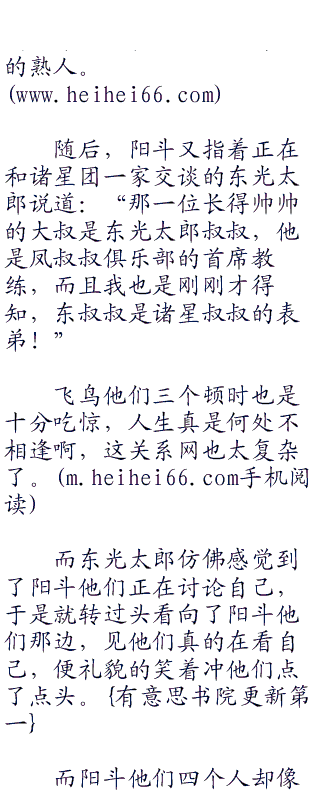 的熟人。
(www.heihei66.com)
随后，阳斗又指着正在
和诸星团一家交谈的东光太
郎说道：“那一位长得帅帅
的大叔是东光太郎叔叔，他
是凤叔叔俱乐部的首席教
练，而且我也是刚刚才得
知，东叔叔是诸星叔叔的表
弟！”
飞鸟他们三个顿时也是
十分吃惊，人生真是何处不
相逢啊，这关系网也太复杂
了。(m.heihei66.com手机阅
读)
而东光太郎仿佛感觉到
了阳斗他们正在讨论自己，
于是就转过头看向了阳斗他
们那边，见他们真的在看自
己，便礼貌的笑着冲他们点
了点头。{有意思书院更新第
一}
而阳斗他们四个人却像